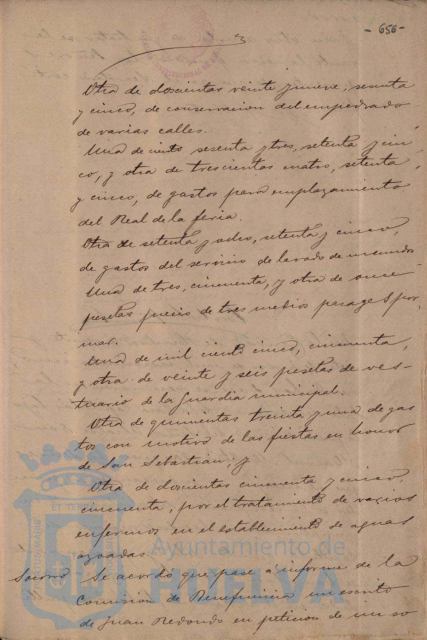 - 656 -
Otra de doscientas veinte y nueve, sesenta
y cinco, de conservacion del empedrado
de varias calles.
Una de ciento sesenta y tres, setenta y cin-
co, y otra de trescientas cuatro, setenta
y cinco, de gastos para emplazamiento
del Real de la feria.
Otra de setenta y ocho, setenta y cinco,
de gastos del servicio de lavado de
Una de tres, cincuenta, y otra de once
pesetas, precio de tres medios pasages por
mar.
Una de mil ciento cinco, cincuenta,
y otra de veinte y seis pesetas de ves-
tuario de la Guardia municipal.
Otra de quinientas treinta y una de gas-
tos con motivo de las fiestas en honor
de San Sebastian: y
Otra de doscientas cincuenta y cinco,
cincuenta, por el tratamiento de varios
enfermos en el establecimiento de aguas
azoadas.
Socorro Se acordó que pase á informe de la
Comision de Beneficencia un escrito
de Juan Redondo en peticion de un so
Ayuntamiento de
HUELVA